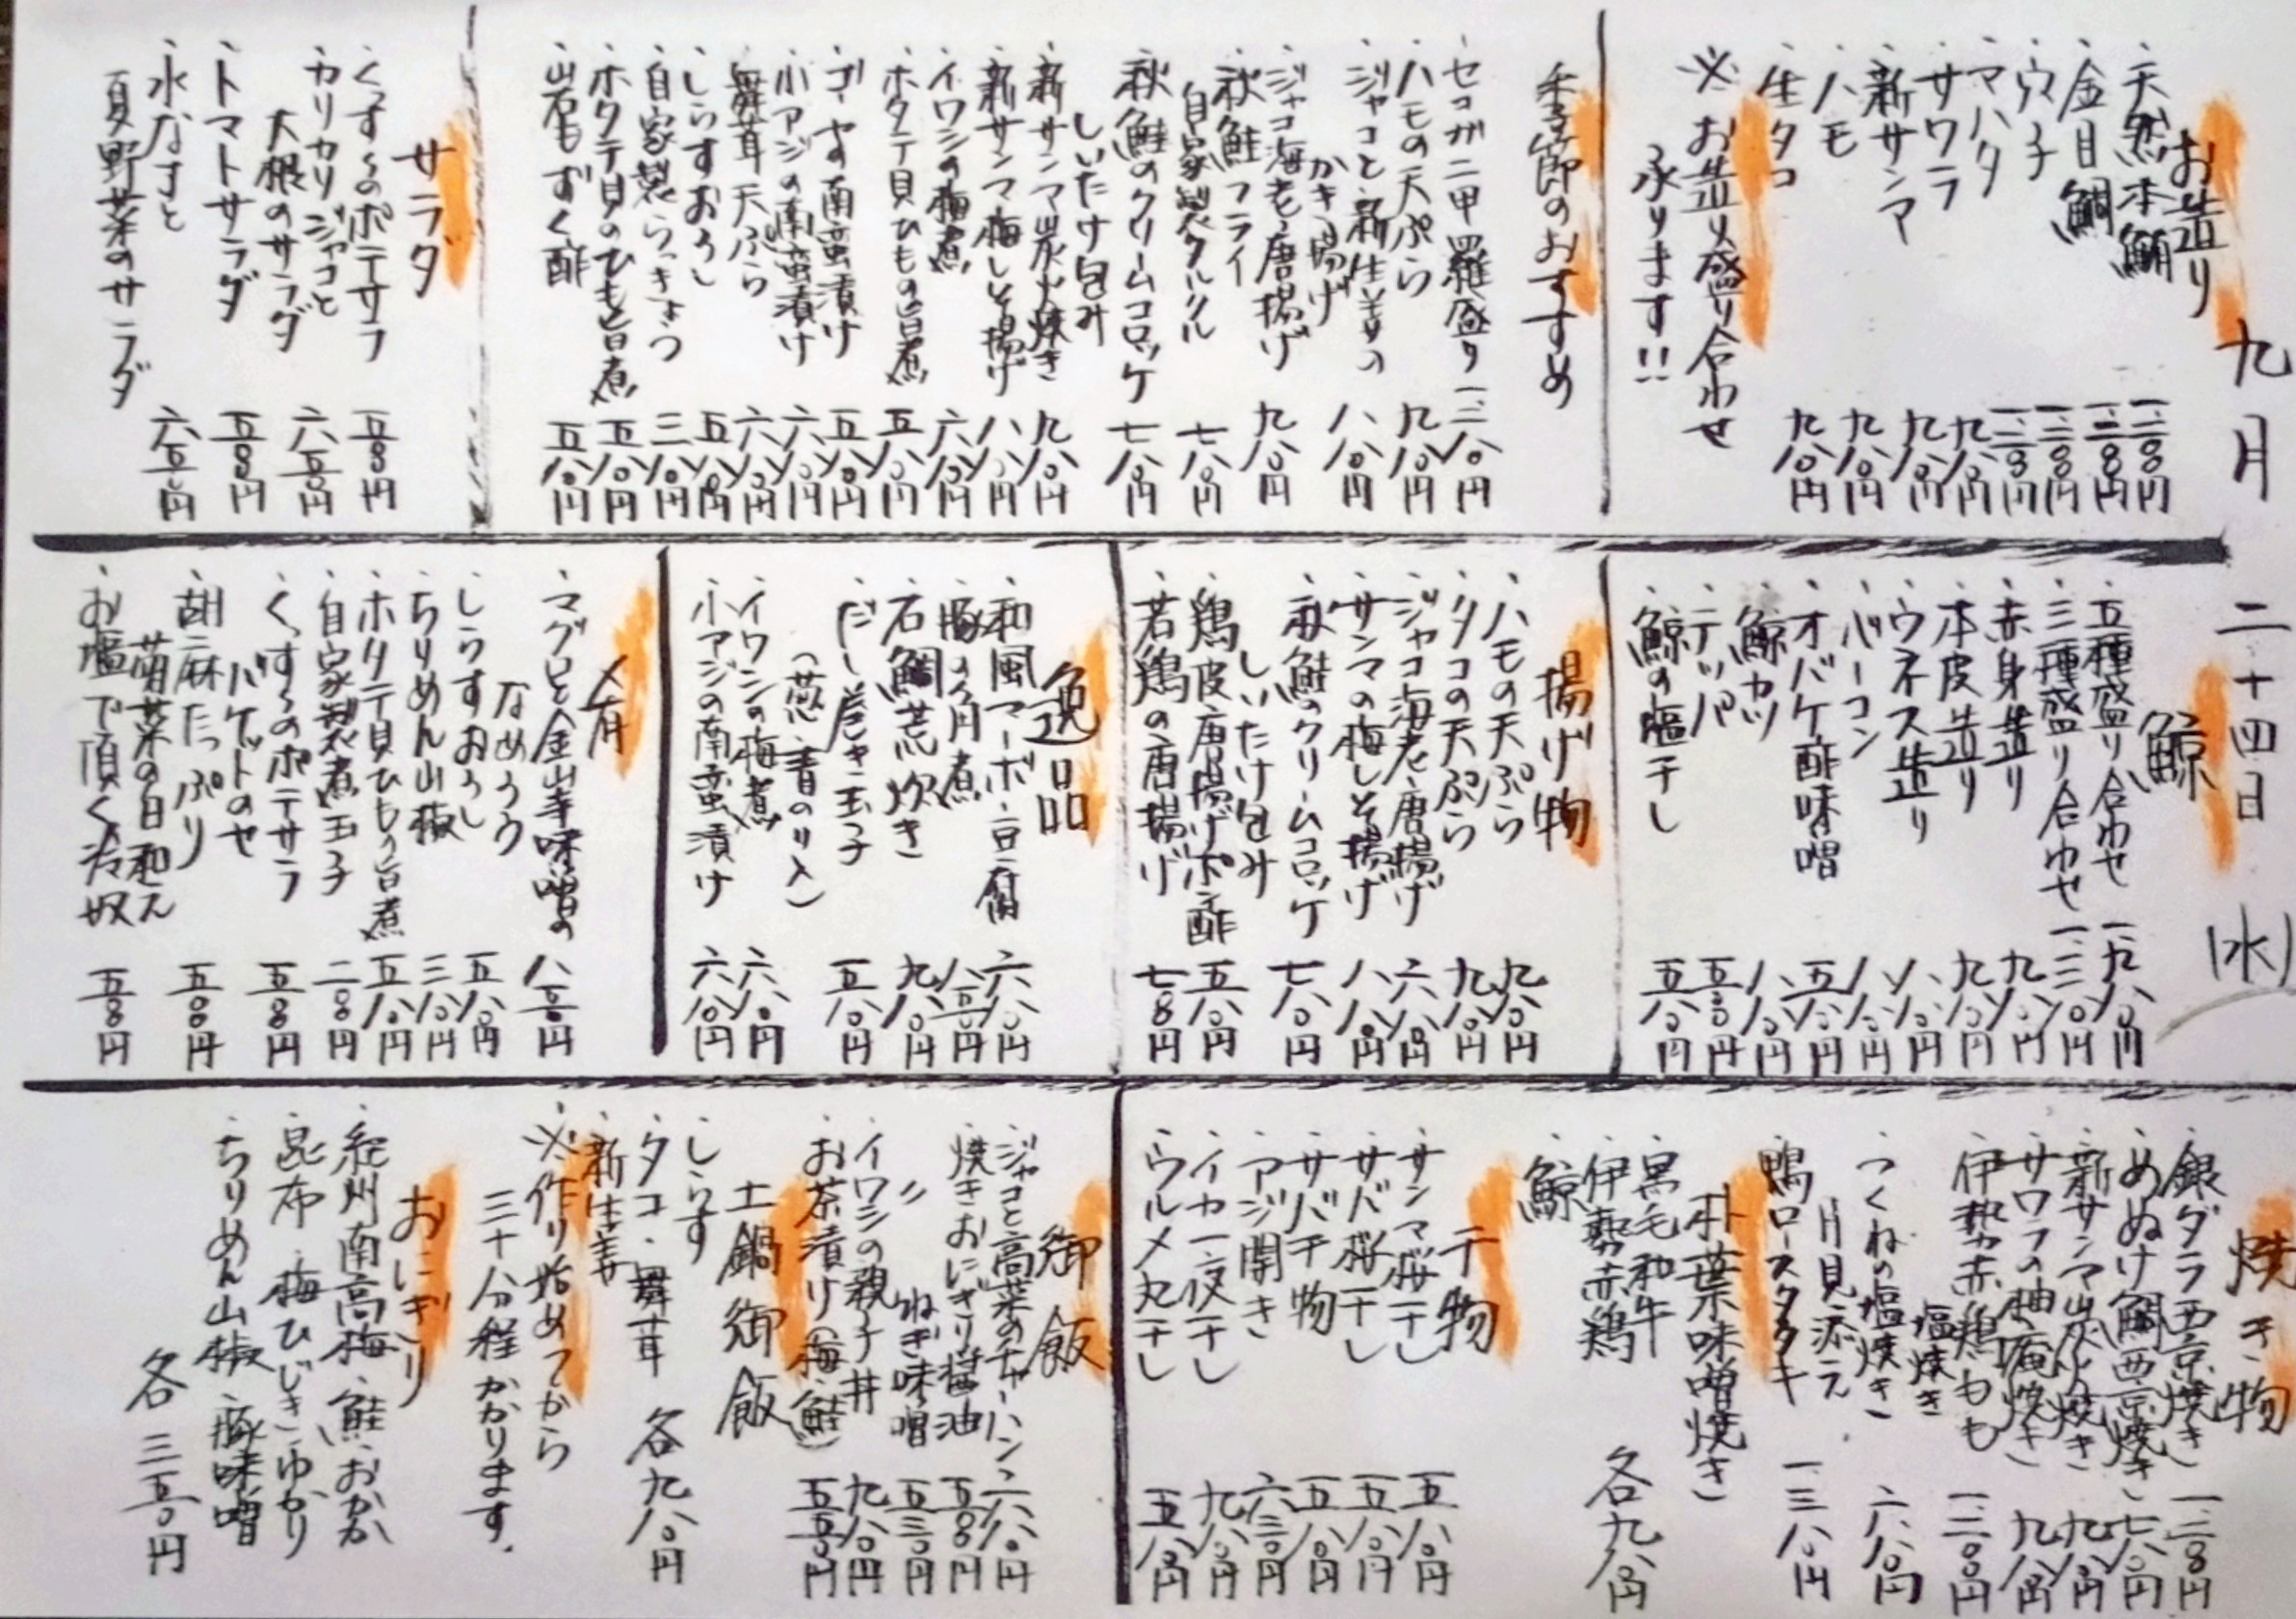 九月二十四日(水)
お造り
・天然本鮪 一二〇〇円
・金目鯛 一二〇〇円
・ウニ 一二〇〇円
・マハタ 一二〇〇円
・サワラ 九八〇円
・新サンマ 九八〇円
・ハモ 九八〇円
・生タコ 九八〇円
※お造り盛り合わせ
承ります!!
季節のおすすめ
・セコガニ甲羅盛り 一三八〇円
・ハモの天ぷら 九八〇円
・ジャコと新生姜の
かき揚げ 八八〇円
・ジャコ海老唐揚げ 九八〇円
・秋鮭フライ
自家製タルタル 七八〇円
・秋鮭のクリームコロッケ
しいたけ包み 七八〇円
・新サンマ炭火焼き 九八〇円
・新サンマ梅しそ揚げ 八八〇円
・イワシの梅煮 六八〇円
・ホタテ貝ひもの旨煮 五八〇円
・ゴーヤの南蛮漬け 五八〇円
・小アジの南蛮漬け 六八〇円
・舞茸天ぷら 六八〇円
・しらすおろし 五八〇円
・自家製らっきょう 三八〇円
・ホタテ貝のひも旨煮 五八〇円
・岩もずく酢 五八〇円
サラダ
・くずくのポテサラ 五〇〇円
・カリカリジャコと
大根のサラダ 六五〇円
・トマトサラダ 五〇〇円
・水なすと
夏野菜のサラダ 六五〇円
鯨
・五種盛り合わせ 一九八〇円
・三種盛り合わせ 一三八〇円
・赤身造り 九八〇円
・本皮造り 九八〇円
・ウネス造り 八八〇円
・ベーコン 八八〇円
・オバケ酢味噌 五八〇円
・鯨カツ 八八〇円
・テッパ 五五〇円
・鯨の塩干し 五八〇円
揚げ物
・ハモの天ぷら 九八〇円
・タコの天ぷら 九八〇円
・ジャコ海老唐揚げ 六八〇円
・サンマの梅しそ揚げ 八八〇円
・秋鮭のクリームコロッケ
しいたけ包み 七八〇円
・鶏皮唐揚げポン酢 五八〇円
・若鶏の唐揚げ 七〇〇円
逸品
・和風マーボー豆腐 六八〇円
・豚の角煮 八五〇円
・石鯛荒炊き 九八〇円
・だし巻き玉子
(葱・青のり入) 五八〇円
・イワシの梅煮 六八〇円
・小アジの南蛮漬け 六八〇円
〆肴
・マグロと金山寺味噌の
なめろう 八五〇円
・しらすおろし 五八〇円
・ちりめん山椒 三八〇円
・ホタテ貝ひもの旨煮 五八〇円
・自家製煮玉子 二〇〇円
・くずくのポテサラ
バケットのせ 五〇〇円
・胡麻たっぷり
菊菜の白和え 五〇〇円
・お塩で頂く冷奴 五〇〇円
焼き物
・銀ダラ西京焼き 一二〇〇円
・めぬけ鯛西京焼き 七八〇円
・新サンマ炭火焼き 九八〇円
・サワラの柚庵焼き 九八〇円
・伊勢赤鶏もも
塩焼き 一二〇〇円
・つくねの塩焼き
月見添え 六八〇円
・鴨ロースタタキ 一三八〇円
朴葉味噌焼き
・黒毛和牛
・伊勢赤鶏
・鯨
各九八〇円
干物
・サンマ桜干し 五八〇円
・サバ桜干し 五八〇円
・サバ干物 五八〇円
・アジ開き 六三〇円
・イカ一夜干し 九八〇円
・ウルメ丸干し 五八〇円
御飯
・ジャコと高菜のチャーハン 六八〇円
・焼きおにぎり醤油 五〇〇円
・〃 ねぎ味噌 五三〇円
・イワシの親子丼 九八〇円
・お茶漬け(梅・鮭) 五五〇円
土鍋御飯
・しらす
・タコ・舞茸 各九八〇円
・新生姜
※作り始めてから
三十分程かかります。
おにぎり
・紀州南高梅・鮭・おかか
・昆布・梅ひじき・ゆかり
・ちりめん山椒・豚味噌
各三五〇円